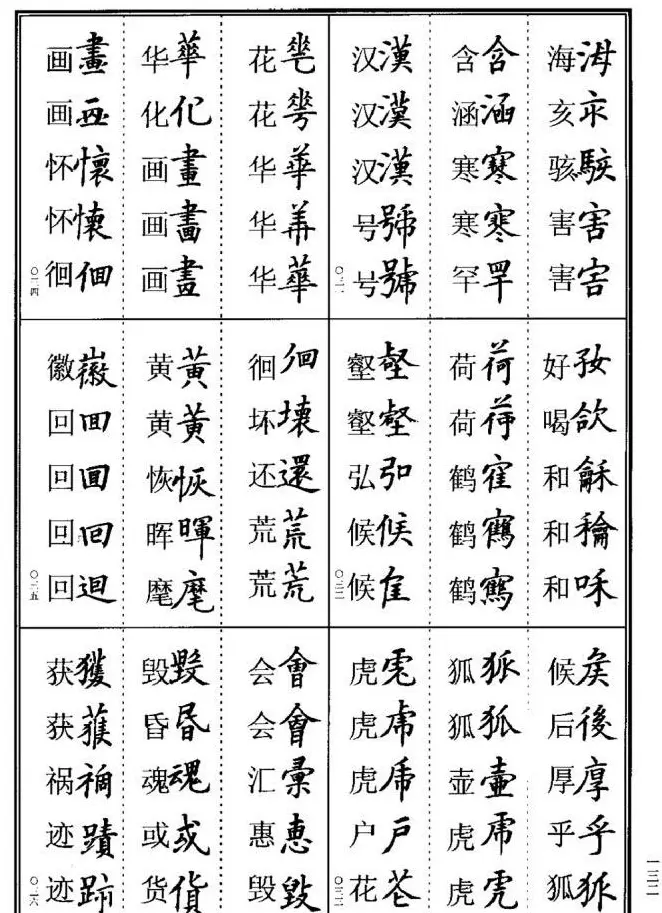 海海 亥亥 骇駭 害害 害害
含含 涵涵 寒寒 寒寒 罕罕
汉漢 汉漢 汉漢 号號 号號
〇三一
好㚥 喝欱 和龢 和龢 和咊
荷荷 荷荷 鹤隺 鹤鶴 鹤鶴
壑壑 壑壑 弘弘 候候 候
〇三二
候矦 后後 厚厚 乎乎 狐狐
狐狐 狐狐 壶壺 虎虎 虎虎
虎虎 虎虎 虎虎 户戶 花花
〇三三
花 花 华華 华 华華
华華 化化 画畫 画畫 画畫
画畫 画 怀懷 怀懷 徊佪
〇三四
徊佪 坏壞 还還 荒荒 荒荒
黄黃 黄黃 恢恢 晖暉 麾麾
徽徽 回囬 回囬 回回 回迴
〇三五
会會 会會 汇彙 惠惠 毁毀
毁毀 昏昬 魂魂 或或 货貨
获獲 获 祸禍 迹蹟 迹跡
〇三六
一三二